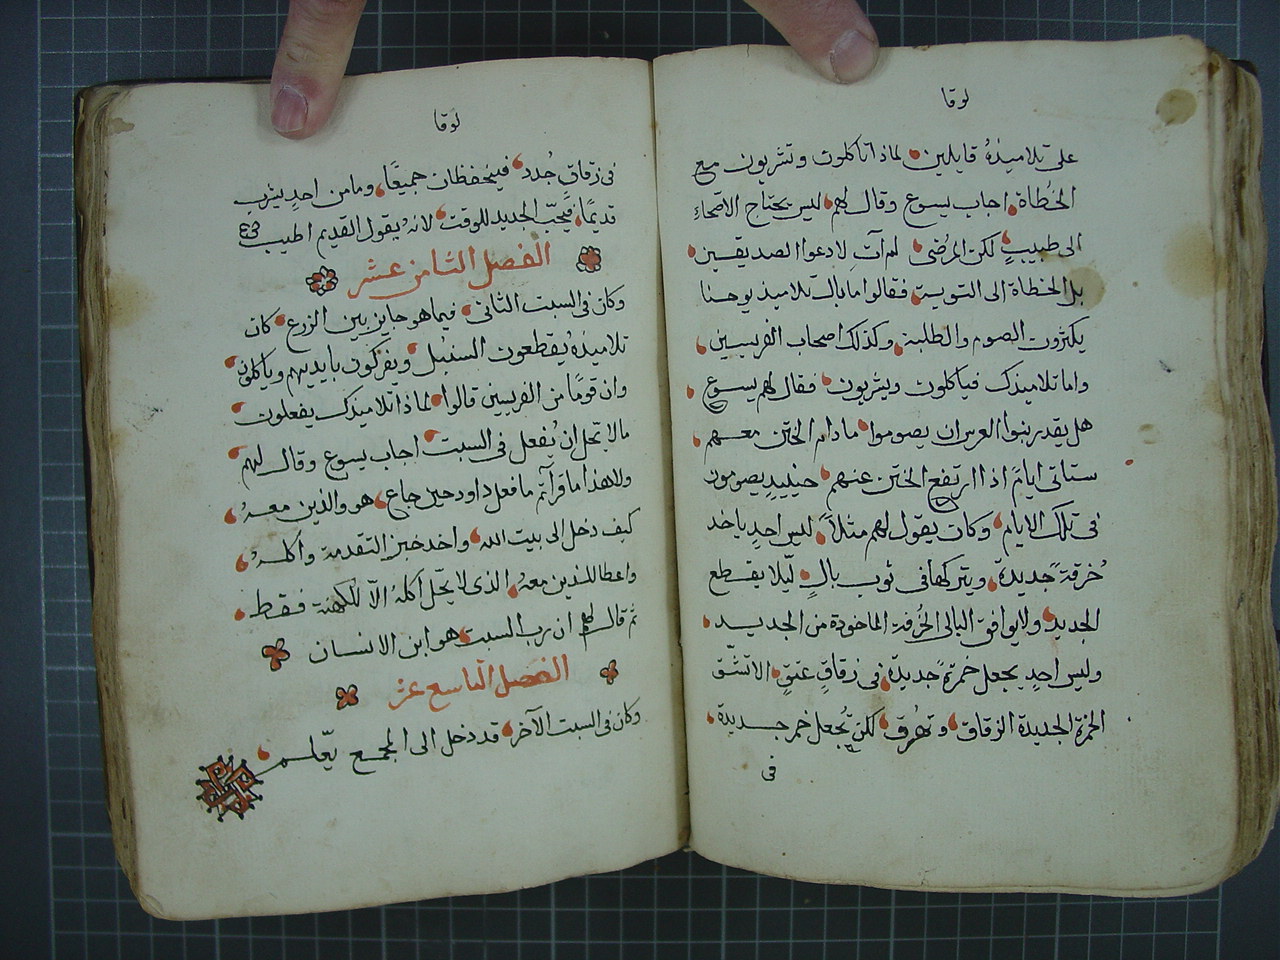 لوقا
على تلاميذهُ قايلين، لماذا تاكلون وتشربون مع
الخُطاة، اجاب يسوع وقال لهم، ليس يحتاج الاصحاء
الى طبيبٍ، لكن المرُضى، لم آتِ لادعوا الصديقين،
بل الخطاة الى التوبة، فقالوا ما بال تلاميذ يوحنا
يكثرون الصوم والطلبة، وكذلك اصحاب الفريسيين،
واما تلاميذك فياكلون ويشربون، فقال لهم يسوع،
هل يقدر بنوا العرس ان يصوموا، ما دام الختن معهم،
ستاتى ايامً اذا ارتفع الختن عنهم، حينيدٍ يصومون
فى تلك الايام، وكان يقول لهم مثلاً، ليس احدٍ ياخد
خُرقةً جديدة، ويتركها فى ثوب بالٍ، ليّلا يقطع
الجديد، ولا يوافق البالى الخُرقة الماخودة من الجديد،
وليس احدٍ يجعل خمرةً جديدة، فى زقاقٍ عتقٍ، الا تنشّق
الخمرة الجديدة الزقاق، وتهُرق، لكن تُجعل خمر جديدة،
فى
لوقا
فى زقاقٍ جُدد، فينحفظان جميعًا، وما من احدٍ يشرب
قديمًا، فيُحبّ الجديد للوقت، لانهُ يقول القديم اطيب
الفصل الثامن عشر
وكان فى السبت الثانى، فيما هو جايز بين الزرع، كان
تلاميذه يُقطعون السنبُل، ويفركون بايديهم وياكلون،
وان قومًا من الفريسيين قالوا، لماذا تلاميذك يفعلون،
ما لا يحل ان يُفعل فى السبت، اجاب يسوع وقال لهم،
ولا هذا ما قرآتم ما فعل داود حين جاع، هو والذين معهُ،
كيف دخل الى بيت الله، واخد خبز التقدمة واكلهُ،
واعطا للذين معهُ، الذى لا يحّل اكلهُ الاّ للكهنة فقط،
ثم قال لهم ان رب السبت، هو ابن الانسان
الفصل التاسع عشر
وكان فى السبت الآخر، قد دخل الى المجمع يّعلم،